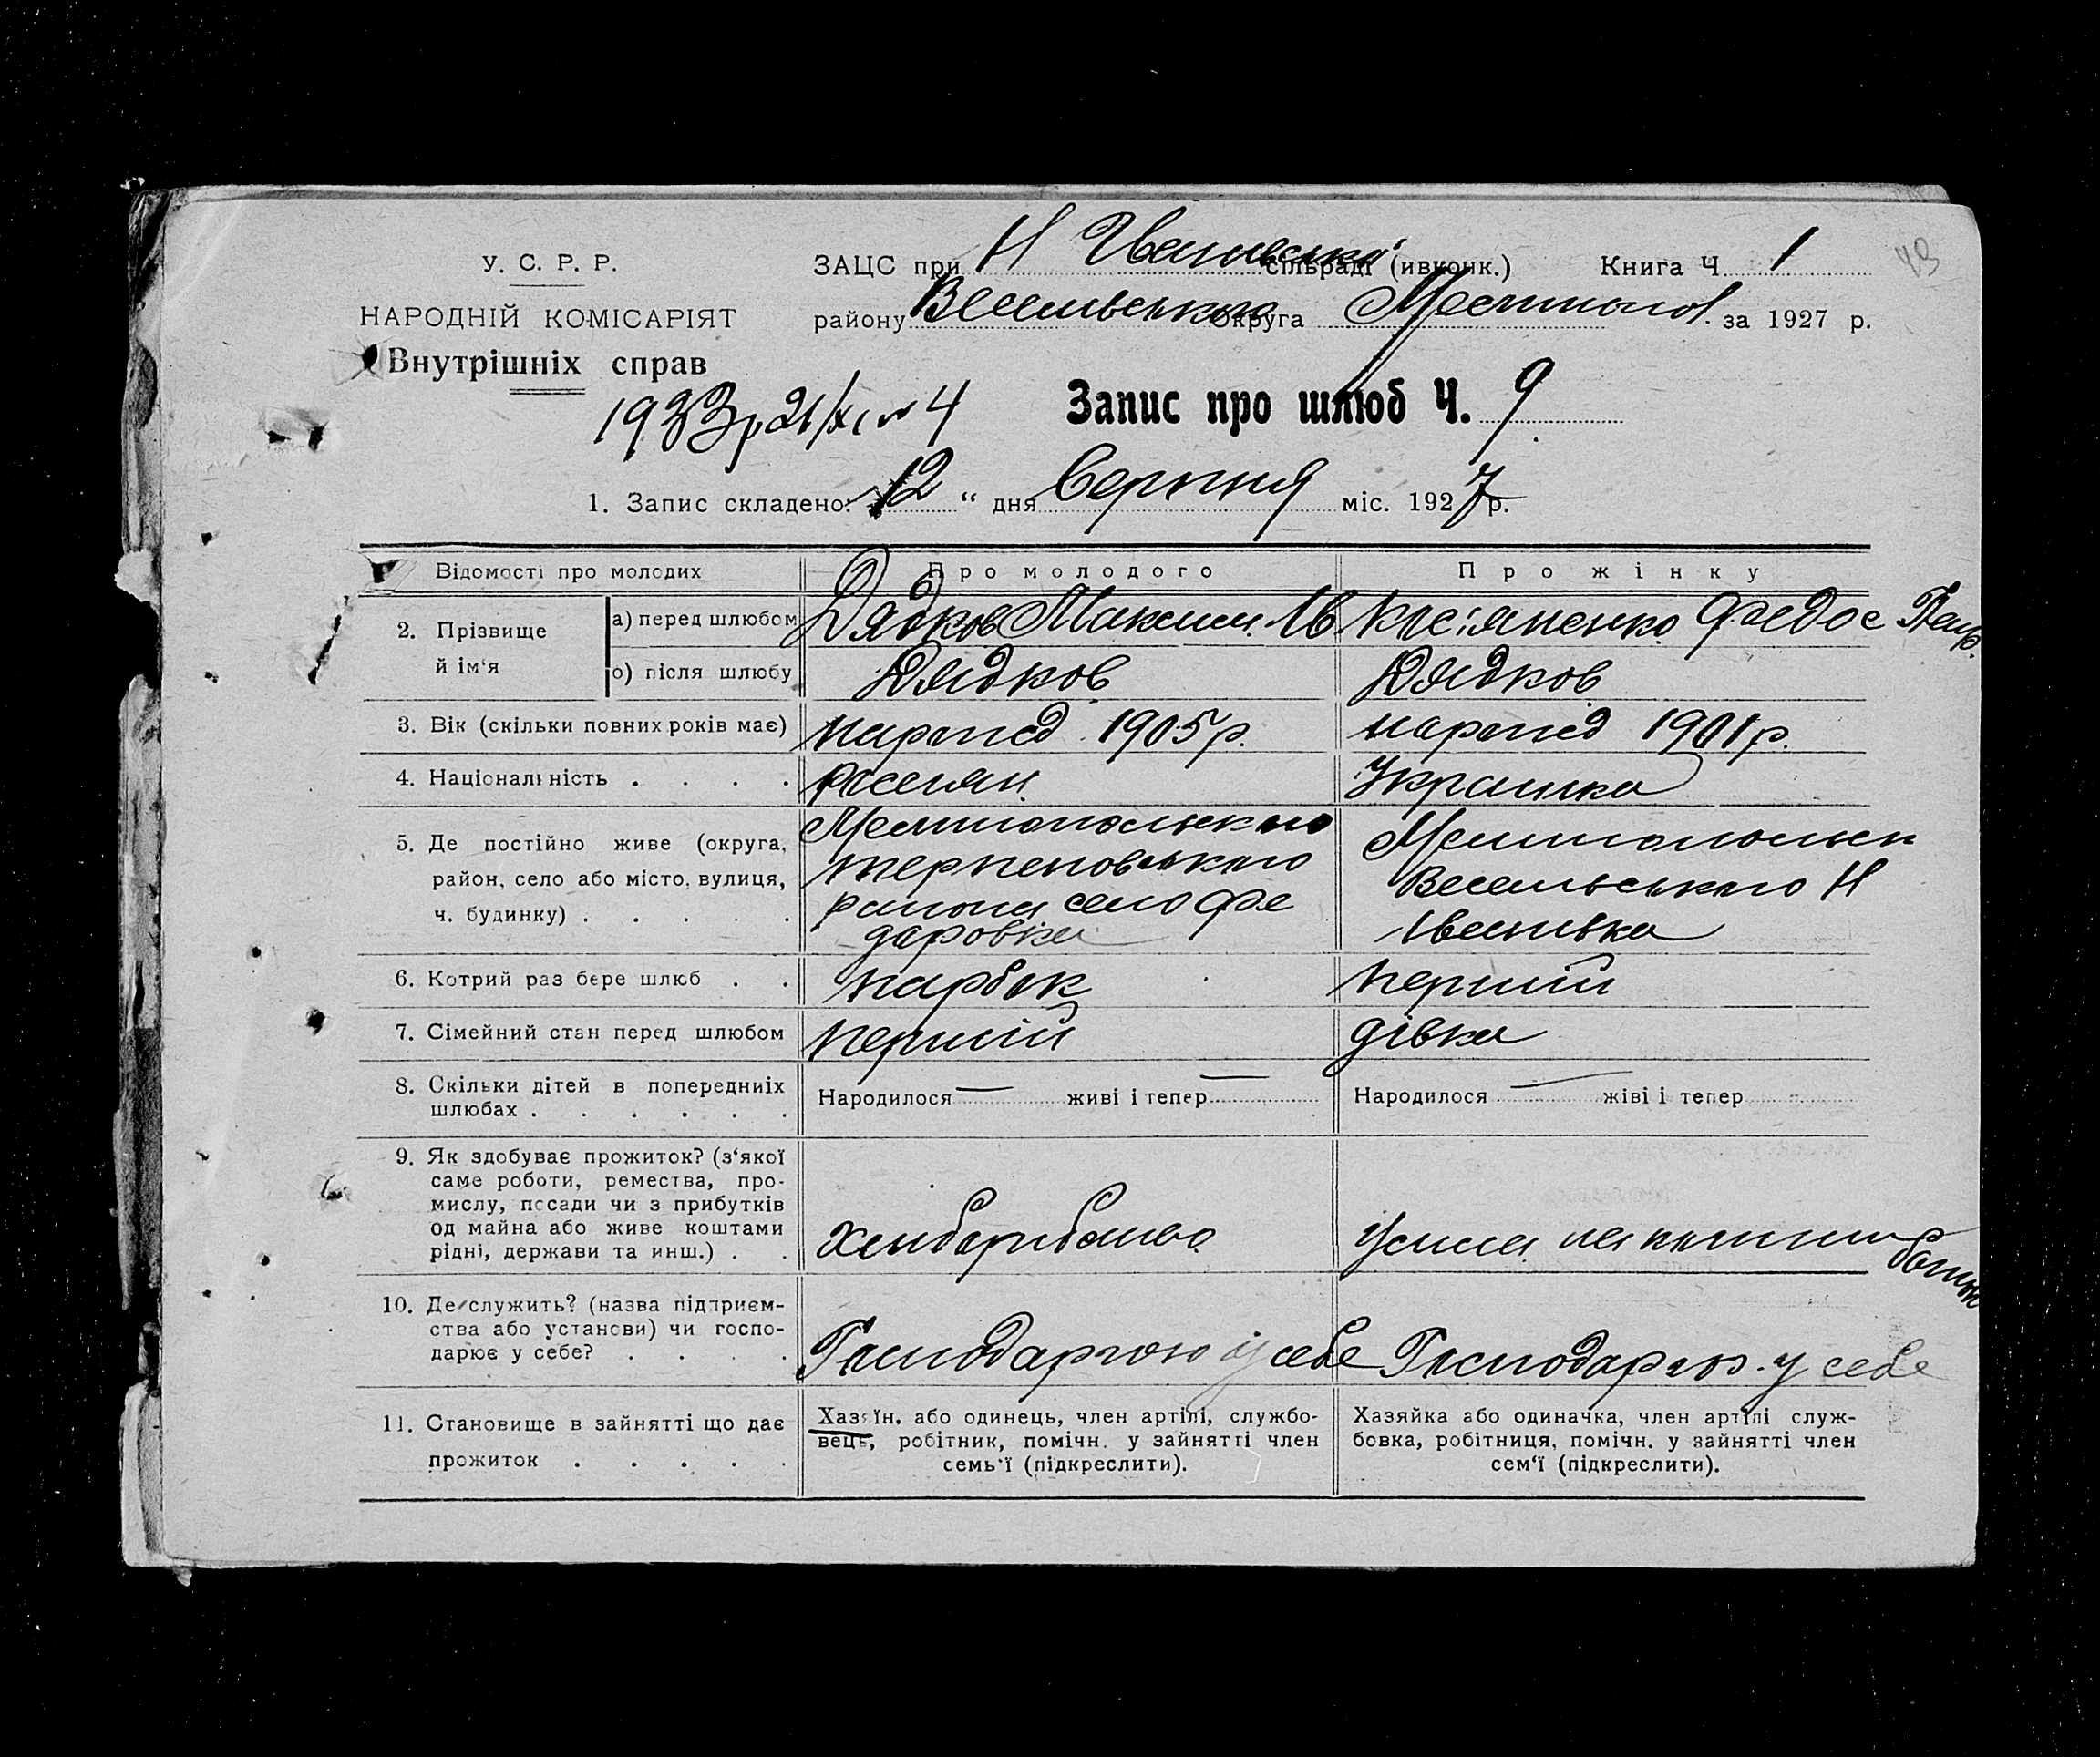 У. С. Р. Р.
НАРОДНІЙ КОМІСАРІЯТ
Внутрішніх справ
ЗАЦС при Н Іванівські сільраді (ивконк.) Книга Ч 1
району Весельвського Округа Мелитопол. за 1927 р.
1933р 21/XI № 4
Запис про шлюб Ч. 9
1. Запис складено: 12 “ дня Серпня міс. 1927 р.
Відомості про молодих Про молодого Про жінку
2. Прізвище й ім‘я
а) перед шлюбом Дядков Максим Ів Федос Петр.
о) після шлюбу Дядков Дядков
3. Вік (скільки повних років має) народ 1905 р. народ 1901 р.
4. Національність . . . . Украинка
5. Де постійно живе (округа, район, село або місто, вулиця, ч. будинку) . . . . .
Мелитопольского
терпеновського
района село Фе
даровка
Мелитопольск
Весельського Н
Іванивка
6. Котрий раз бере шлюб . . парбок перший
7. Сімейний стан перед шлюбом перший дівка
8. Скільки дітей в попередниіх шлюбах . . . . . .
Народилося — живі і тепер —
Народилося — жіві і тепер
9. Як здобуває прожиток? (з‘якої
саме роботи, ремества, про-
мислу, посади чи з прибутків
од майна або живе коштами
рідні, держави та инш.) . .
10. Де служить? (назва підприєм-
ства або установи) чи госпо-
дарює у себе? . . . .
Господарюю у себе Господарюю у себе
11. Становище в зайнятті що дає
прожиток . . . . .
Хазяїн, або одинець, член артілі, службо-
вець, робітник, помічн. у зайнятті член
семь‘ї (підкреслити).
Хазяйка або одиначка, член артілі служ-
бовка, робітниця, помічн. у зайнятті член
сем‘ї (підкреслити).